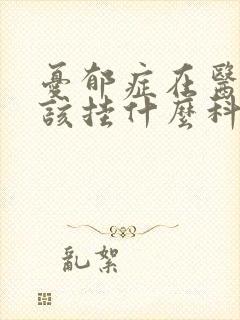 憂郁症在醫
該挂什麼科
亂絮